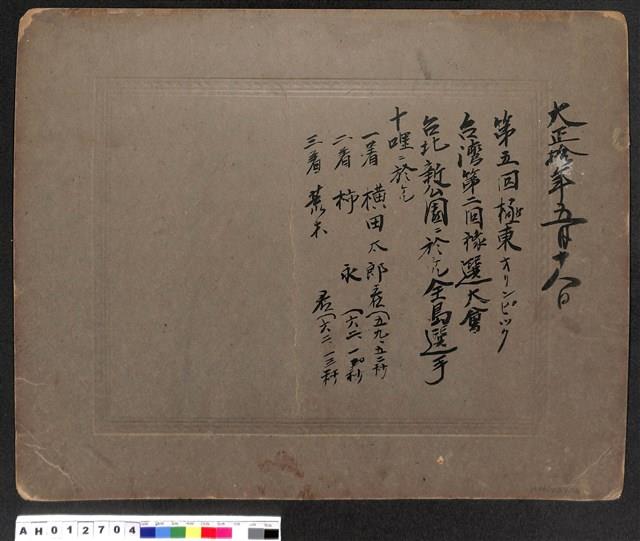 大正拾年五月十八日
第五回極東オリンピック
台湾第二回豫選大會
台北新公園ニ於ケル全島選手
十哩ニ於ケル
一着 横田太郎君(五九、五二秒
二着 柿 永 (六二、一四秒
三着 荒木 君(六二、一三秒
AH012704